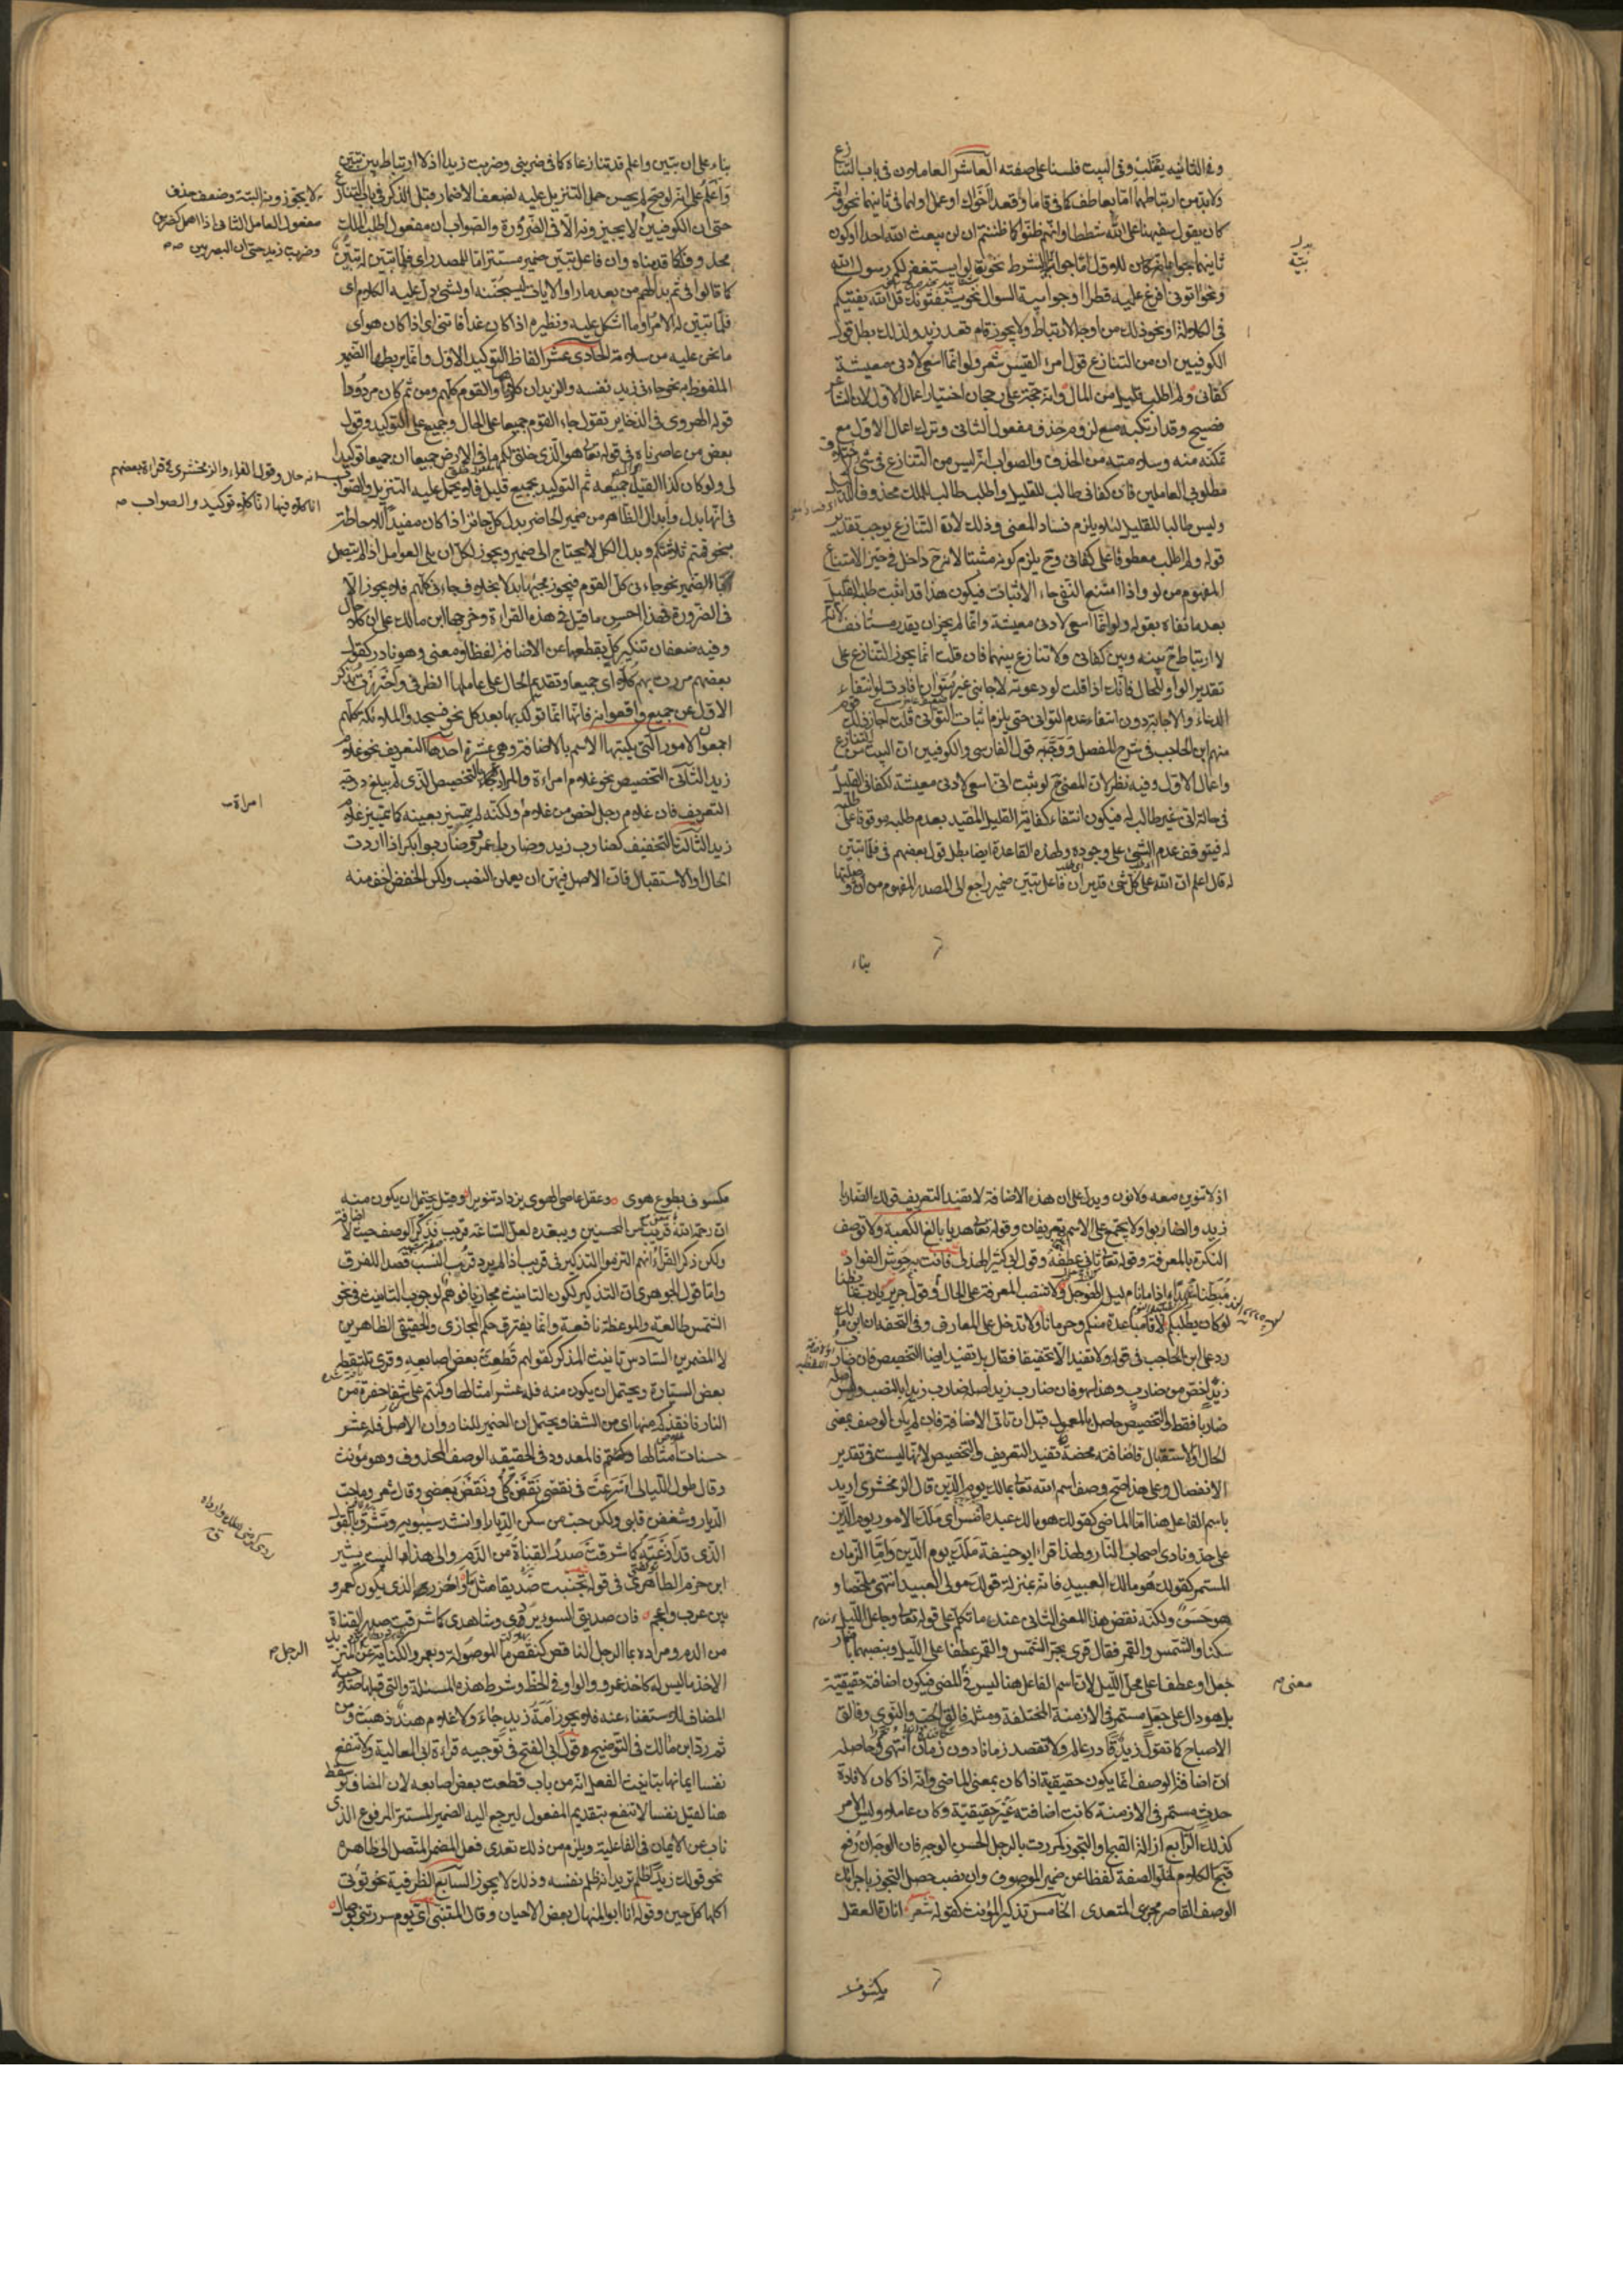 وفي الثانيه يقلب وفي البيت فلسنا على صفته العاشر العاملان في باب التنازع
ولابد من ارتباطهما اما بعاطف كما في قاما وقعد اخواك او عمل اولهما في ثانيهما نحو وانه
كان يقول سفيهنا على الله شططا وانهم ظنوا كما ظننتم ان لن يبعث الله احدا او كون
ثانيهما جوابا للاول اما جوابية الشرط نحو تعالوا يستغفر لكم رسول الله
ونحو اتوني افرغ عليه قطرا او جوابية السوال نحو يستفتونك قل الله يفتيكم
في الكلالة او نحو ذلك من اوجه الارتباط ولا يجوز قام قعد زيد ولذلك بطل قول
الكوفيين ان من التنازع قول امرئ القيس شعر ولو انما اسعى لادنى معيشة
كفاني ولم اطلب قليل من المال وانه حجة على رجحان اختيار اعمال الاول لان الشاعر
فصيح وقد ارتكبه مع لزوم حذف مفعول الثاني وترك اعمال الاول مع
تمكنه منه وسلامته من الحذف والصواب انه ليس من التنازع في شئ لاختلاف
مطلوبي العاملين فان كفاني طالب للقليل واطلب طالب الملك محذوفا للدليل
وليس طالبا للقليل لئلا يلزم فساد المعنى وذلك لان التنازع يوجب تقدير
قوله ولم اطلب معطوفا على كفاني وح يلزم كونه مثبتا لانه ح داخل في حيز الامتناع
المفهوم من لو واذا امتنع النفي جاء الاثبات فيكون هذا قد اثبت طلبه للقليل
بعد ما نفاه بقوله ولو انما اسعى لادنى معيشة وانما لم يجز ان يقدر مستأنفا لانه
لا ارتباط ح بينه وبين كفاني ولا تنازع بينهما فان قلت انما يجوز التنازع على
تقدير الواو للحال فانك اذا قلت لو دعوته لاجابني غير متوان افادت لو انتفاء
الدعاء والاجابة دون انتفاء عدم التواني حتى يلزم ثبات التواني قلت اجاز ذلك قوم
منهم ابن الحاجب في شرح المفصل ووجه به قول الفارسي والكوفيين ان البيت من التنازع
واعمال الاول وفيه نظر لان المعنى ح لو ثبت اني اسعى لادنى معيشة لكفاني القليل
في حالة اني غير طالب له فيكون انتفاء كفاية القليل المقيد بعدم طلبه موقوفا على طلبه
له فيتوقف عدم الشئ على وجوده ولهذه القاعدة ايضا بطل قول بعضهم في فلما تبين
له قال اعلم ان الله على كل شئ قدير ان فاعل تبين ضمير راجع الى المصدر المفهوم من ان وصلتها
بناء
بناء على ان تبين واعلم قد تنازعاه كما في ضربني وضربت زيدا اذ لا ارتباط بين تبين
واعلم على انه لو صح لم يحسن حمل التنزيل عليه لضعف الاضمار قبل الذكر في باب التنازع
حتى ان الكوفيين لا يجيزونه الا في الضرورة والصواب ان مفعول اطلب الملك
محذوفا كما قدمناه وان فاعل تبين ضمير مستتر اما للمصدر اي فلما تبين له تبين
كما قالوا في ثم بدا لهم من بعد ما راوا الايات ليسجننه او لشئ دل عليه الكلام اي
فلما تبين له الامر او ما اشكل عليه ونظيره اذا كان غدا فاتني اي اذا كان هو اي
ما نحن عليه من سلامة الحادي عشر الفاظ التوكيد الاول وانما يربطها الضمير
الملفوظ به نحو جاءني زيد نفسه والزيدان كلاهما والقوم كلهم ومن ثم كان مردودا
قول الهروي في الذخاير تقول جاء القوم جميعا على الحال وجميع على التوكيد وقول
بعض من عاصرناه في قوله تعالى هو الذي خلق لكم ما في الارض جميعا ان جميعا توكيد لما
لي ولو كان كذا لقيل جميعه ثم التوكيد بجميع قليل فلا يحمل عليه التنزيل والصواب
في انها بدل وابدال الظاهر من ضمير الحاضر بدل كل جائز اذا كان مفيدا للاحاطة
نحو قمتم ثلاثتكم وبدل الكل لا يحتاج الى ضمير ويجوز لكل ان يلي العوامل اذا لم يتصل
بالضمير نحو جاءني كل القوم فيجوز مجيئها بدلا بخلاف جاءني كلهم فلا يجوز الا
في الضرورة فهذا احسن ما قيل في هذه القراءة وخرجها ابن مالك على ان كلا حال
وفيه ضعفان تنكير كل بقطعها عن الاضافة لفظا ومعنى وهو نادر كقول
بعضهم مررت بهم كلا اي جميعا وتقديم الحال على عاملها الظرفي واحترزت بذكر
الاول عن جميع واخواته فانها انما توكد بها بعد كل نحو فسجد الملائكة كلهم
اجمعون الامور التي يكتسبها الاسم بالاضافة وهي عشرة احدها التعريف نحو غلام
زيد الثاني التخصيص نحو غلام امراءة والمراد بالتخصيص الذي لم يبلغ درجة
التعريف فان غلام رجل اخص من غلام ولكنه لم يتميز بعينه كما يتميز غلام
زيد الثالث التخفيف كضارب زيد وضاربا عمرو وضاربوا بكر اذا اردت
الحال والاستقبال فان الاصل فيهن ان يعملن النصب ولكن الخفض اخف منه
لا يجوز ونه البتة وضعف حذف
مفعول العامل الثاني اذا اهمل كضربني
وضربت زيد حتى ان البصريين
انه حال وقول الفراء والزمخشري في قراءة بعضهم
انا كلا فيها ان كلا توكيد والصواب
امراة
اذ لا تنوين معه ولا نون ويدل على ان هذه الاضافة لا تفيد التعريف قولك الضاربا
زيد والضاربوا ولا يجتمع على الاسم تعريفان وقوله تعالى هديا بالغ الكعبة ولا توصف
النكرة بالمعرفة وقوله تعالى ثاني عطفه وقول ابي كبير الهذلي فاتت به حوش الفواد
مبطنا سهدا اذا ما نام ليل الهوجل ولا تنتصب المعرفة على الحال وقول جرير يا رب غابطنا
لو كان يطلبكم لاقى مباعدة منكم وحرمانا ولا تدخل على المعارف وفي التحفة ان ابن مالك
رد على ابن الحاجب في قوله ولا تفيد الا تخفيفا فقال بل تفيد ايضا التخصيص فان ضارب
زيد اخص من ضارب وهذا سهو فان ضارب زيد اصله ضارب زيدا بالنصب وليس اصله
ضاربا فقط فالتخصيص حاصل بالمعمول قبل ان تاتي الاضافة فان لم يكن الوصف بمعنى
الحال والاستقبال فاضافته محضة تفيد التعريف والتخصيص لانها ليست في تقدير
الانفصال وعلى هذا صح وصف اسم الله تعالى بمالك يوم الدين قال الزمخشري اريد
باسم الفاعل هنا اما الماضي كقولك هو مالك عبده امس اي ملك الامور يوم الدين
على حد ونادى اصحاب النار ولهذا قراء ابو حنيفة ملك يوم الدين واما الزمان
المستمر كقولك هو مالك العبيد فانه بمنزلة قولك مولى العبيد انتهى ملخصا و
هو حسن ولكنه نقض هذا المعنى الثاني عند ما تكلم على قوله تعالى وجاعل الليل
سكنا والشمس والقمر فقال قرئ بجر الشمس والقمر عطفا على الليل وبنصبهما باضمار
جعل او عطفا على محل الليل لان اسم الفاعل هنا ليس في المضي فيكون اضافة حقيقية
بل هو دال على جعل مستمر في الازمنة المختلفة ومثله فالق الحب والنوى وفالق
الاصباح كما تقول زيد قادر عالم ولا تقصد زمانا دون زمان انتهى وحاصله
ان اضافة الوصف انما يكون حقيقية اذا كان بمعنى الماضي وانه اذا كان لافادة
حدث مستمر في الازمنة كانت اضافته غير حقيقية وكان عاملا وليس الامر
كذلك الرابع ازالة القبح او التجوز كمررت بالرجل الحسن الوجه فان الوجه ان رفع
قبح الكلام لخلو الصفة لفظا عن ضمير الموصوف وان نصب حصل التجوز باجرائك
الوصف القاصر مجرى المتعدي الخامس تذكير المؤنث كقوله شعر انارة العقل
معنى
مكسوف
مكسوف بطوع هوى وعقل عاصي الهوى يزداد تنويرا وقيل يحتمل ان يكون منه
ان رحمة الله قريب من المحسنين ويبعده لعل الساعة قريب فذكر الوصف حيث لا اضافة
ولكن ذكر الفراء انهم التزموا التذكير في قريب اذا لم يرد قرب النسب قصدا للفرق
واما قول الجوهري ان التذكير لكون التانيث مجازيا فوهم لوجوب التانيث في نحو
الشمس طالعة والموعظة نافعة وانما يفترق حكم المجازي والحقيقي الظاهرين
لا المضمرين السادس تانيث المذكر كقولهم قطعت بعض اصابعه وقرئ تلتقطه
بعض السيارة ويحتمل ان يكون منه فله عشر امثالها وكنتم على شفا حفرة من
النار فانقذكم منها اي من الشفا ويحتمل ان الضمير للنار وان الاصل فله عشر
حسنات امثالها فالمعدود في الحقيقة الوصف المحذوف وهو مؤنث
وقال طول الليالي اسرعت في نقضي نقضن كلي ونقضن بعضي وقال شعر وما حب
الديار شغفن قلبي ولكن حب من سكن الديارا وانشد سيبويه وتشرق بالقول
الذي قد اذعته كما شرقت صدر القناة من الدم والى هذا البيت يشير
ابن حزم الظاهري في قوله تجنب صديقا مثل ما واحذر الذي يكون كعمرو
بين عرب واعجم فان صديق السوء يزري وشاهدي كما شرقت صدر القناة
من الدم ومراده بما الرجل الناقص كنقص ما الموصولة وبعمرو الكناية عن المتزيد
الاخذ ما ليس له كاخذ عمرو الواو في الخط وشرط هذه المسئلة والتي قبلها صلاحية
المضاف للاستغناء عنه فلا يجوز امة زيد جاء ولا غلام هند ذهبت ومن
ثم رد ابن مالك في التوضيح قول ابي الفتح في توجيه قراءة ابي العالية ولا تنفع
نفسا ايمانها بتانيث الفعل انه من باب قطعت بعض اصابعه لان المضاف لو سقط
هنا لقيل نفسا لا تنفع بتقديم المفعول ليرجع اليه الضمير المستتر المرفوع الذي
ناب عن الايمان في الفاعلية ويلزم من ذلك تعدي فعل المضمر المتصل الى ظاهره
نحو قولك زيدا ظلم تريد انه ظلم نفسه وذلك لا يجوز السابع الظرفية نحو تؤتي
اكلها كل حين وقوله انا ابو المنهال بعض الاحيان وقال المتنبي اي يوم سررتني بوصال
الرجل